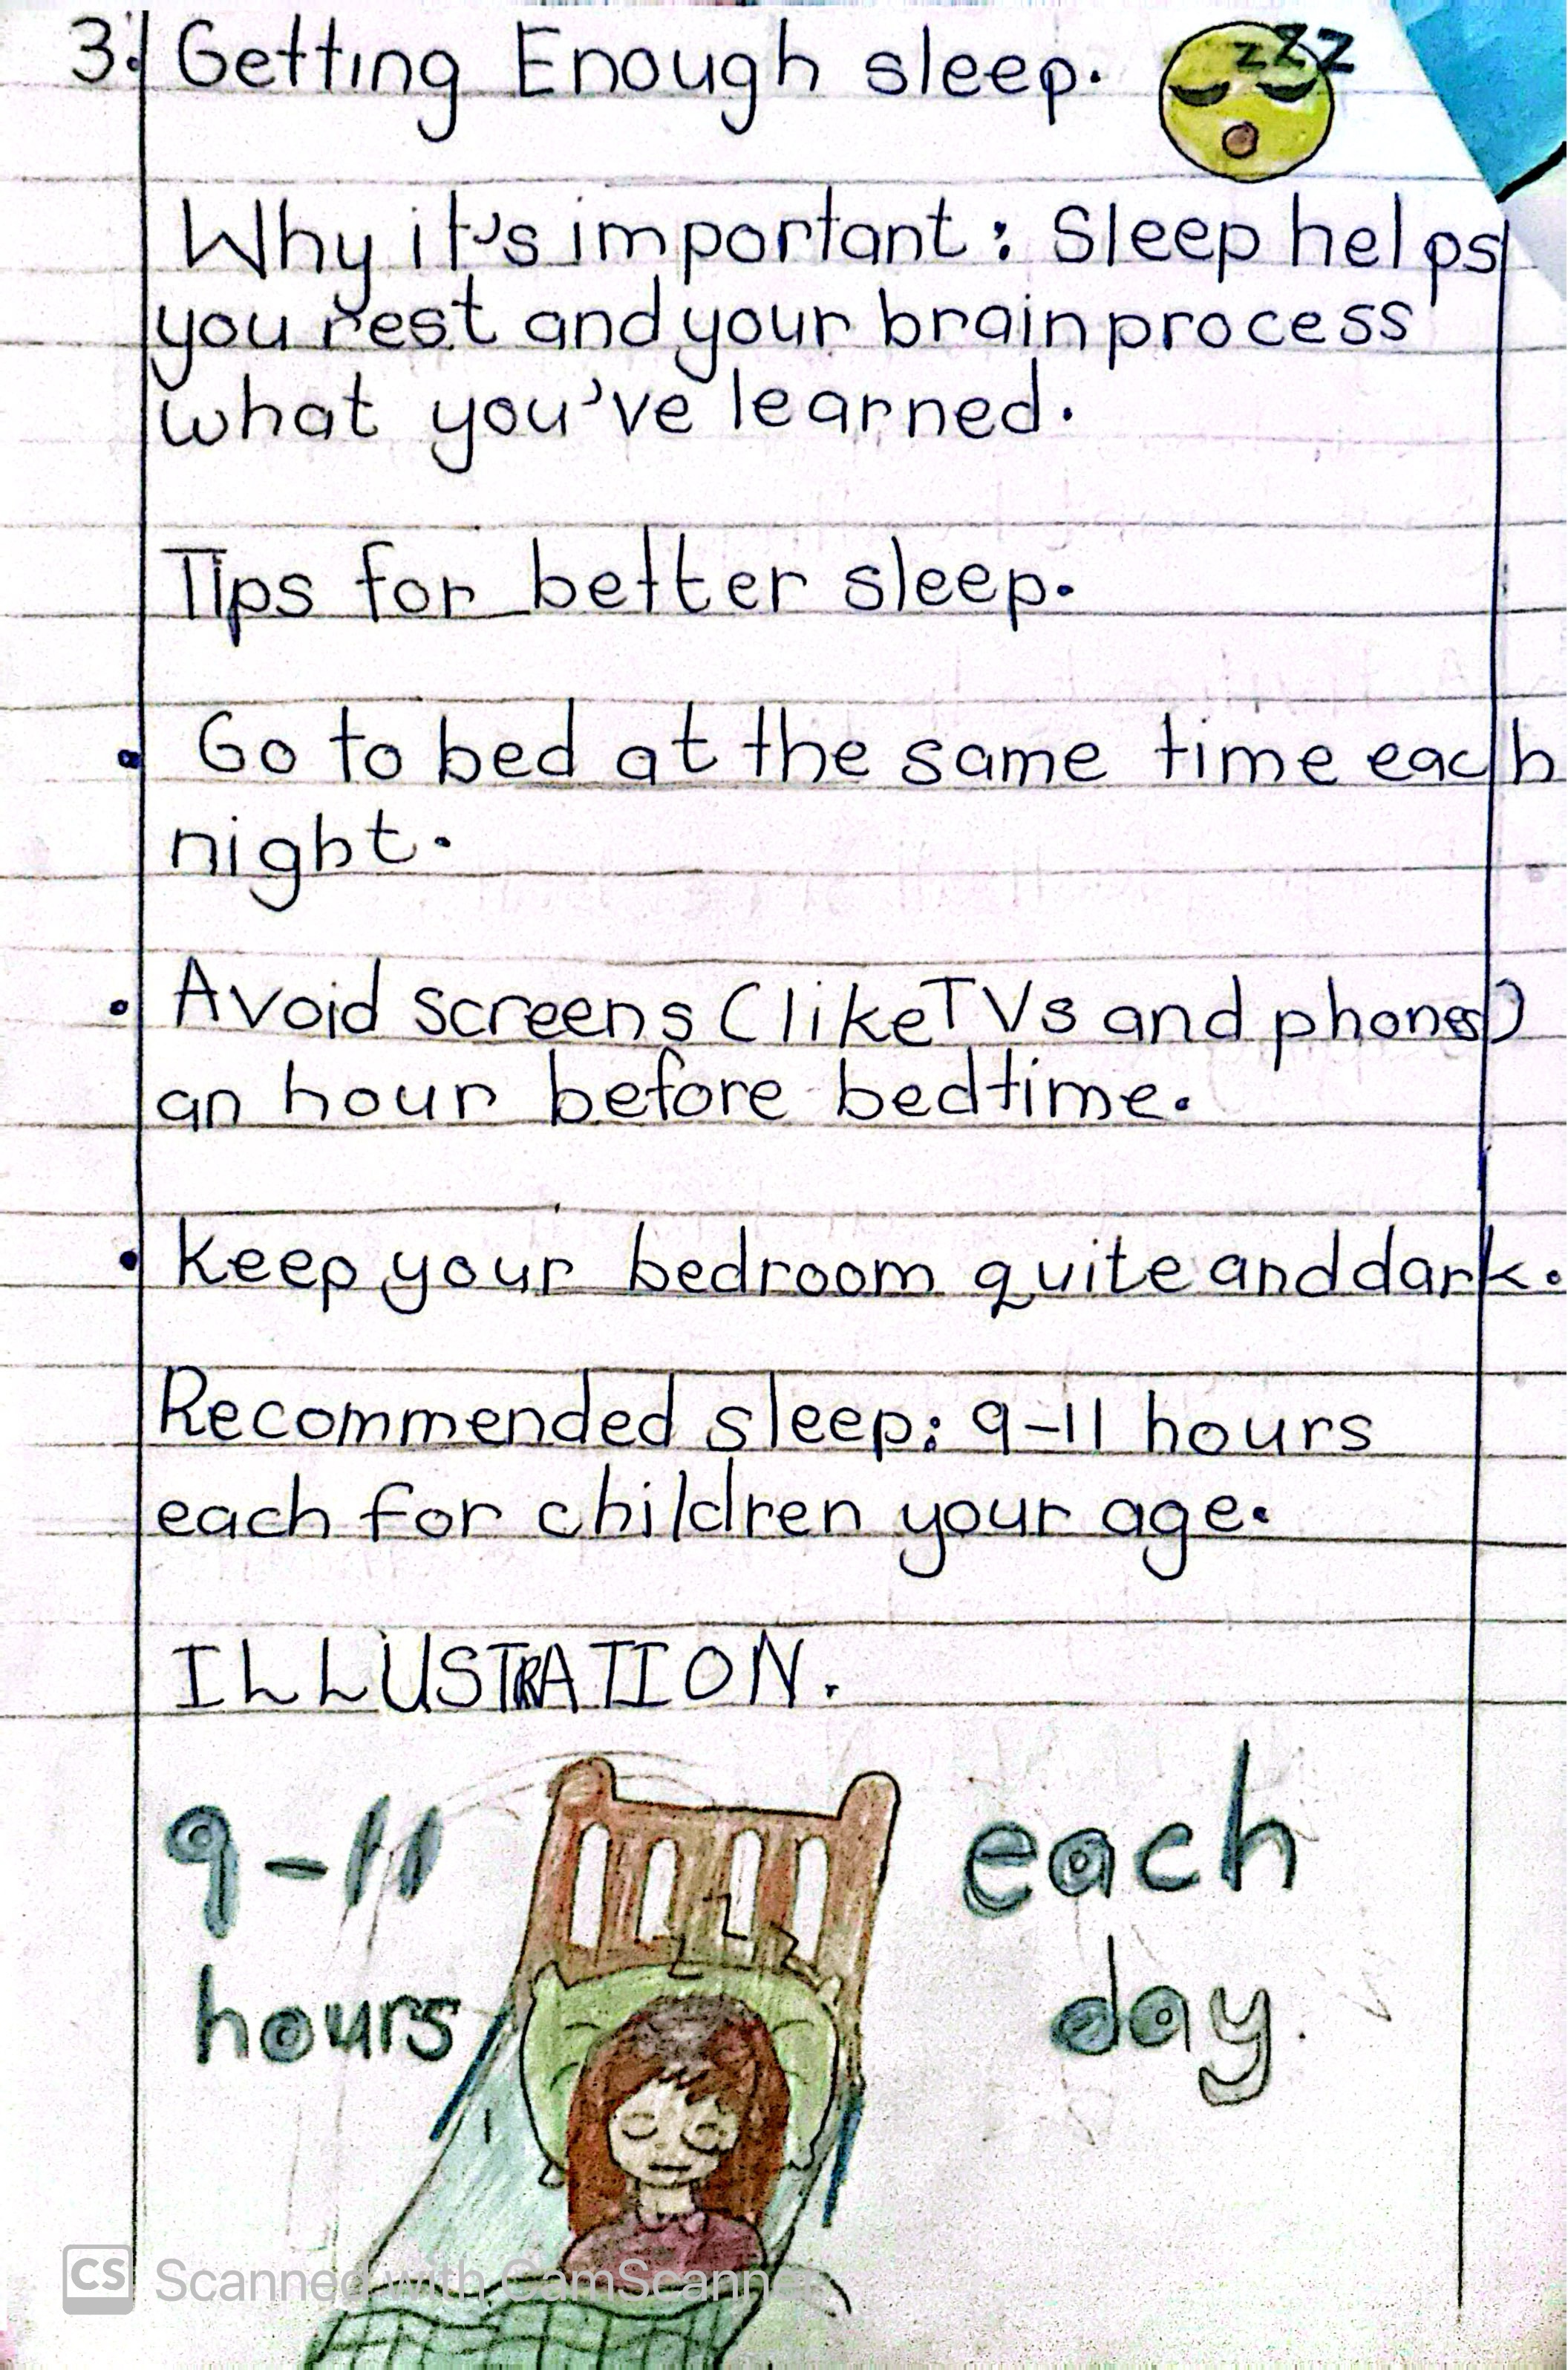 3. Getting Enough sleep.
zzz
Why it's important: Sleep helps
you rest and your brain process
what you've learned.
Tips for better sleep.
• Go to bed at the same time each
night.
• Avoid screens (like TVs and phones)
an hour before bedtime.
• Keep your bedroom quite and dark.
Recommended sleep: 9-11 hours
each for children your age.
ILLUSTRATION.
9-11
hours
each
day.
z z z
CS Scanned with CamScanner